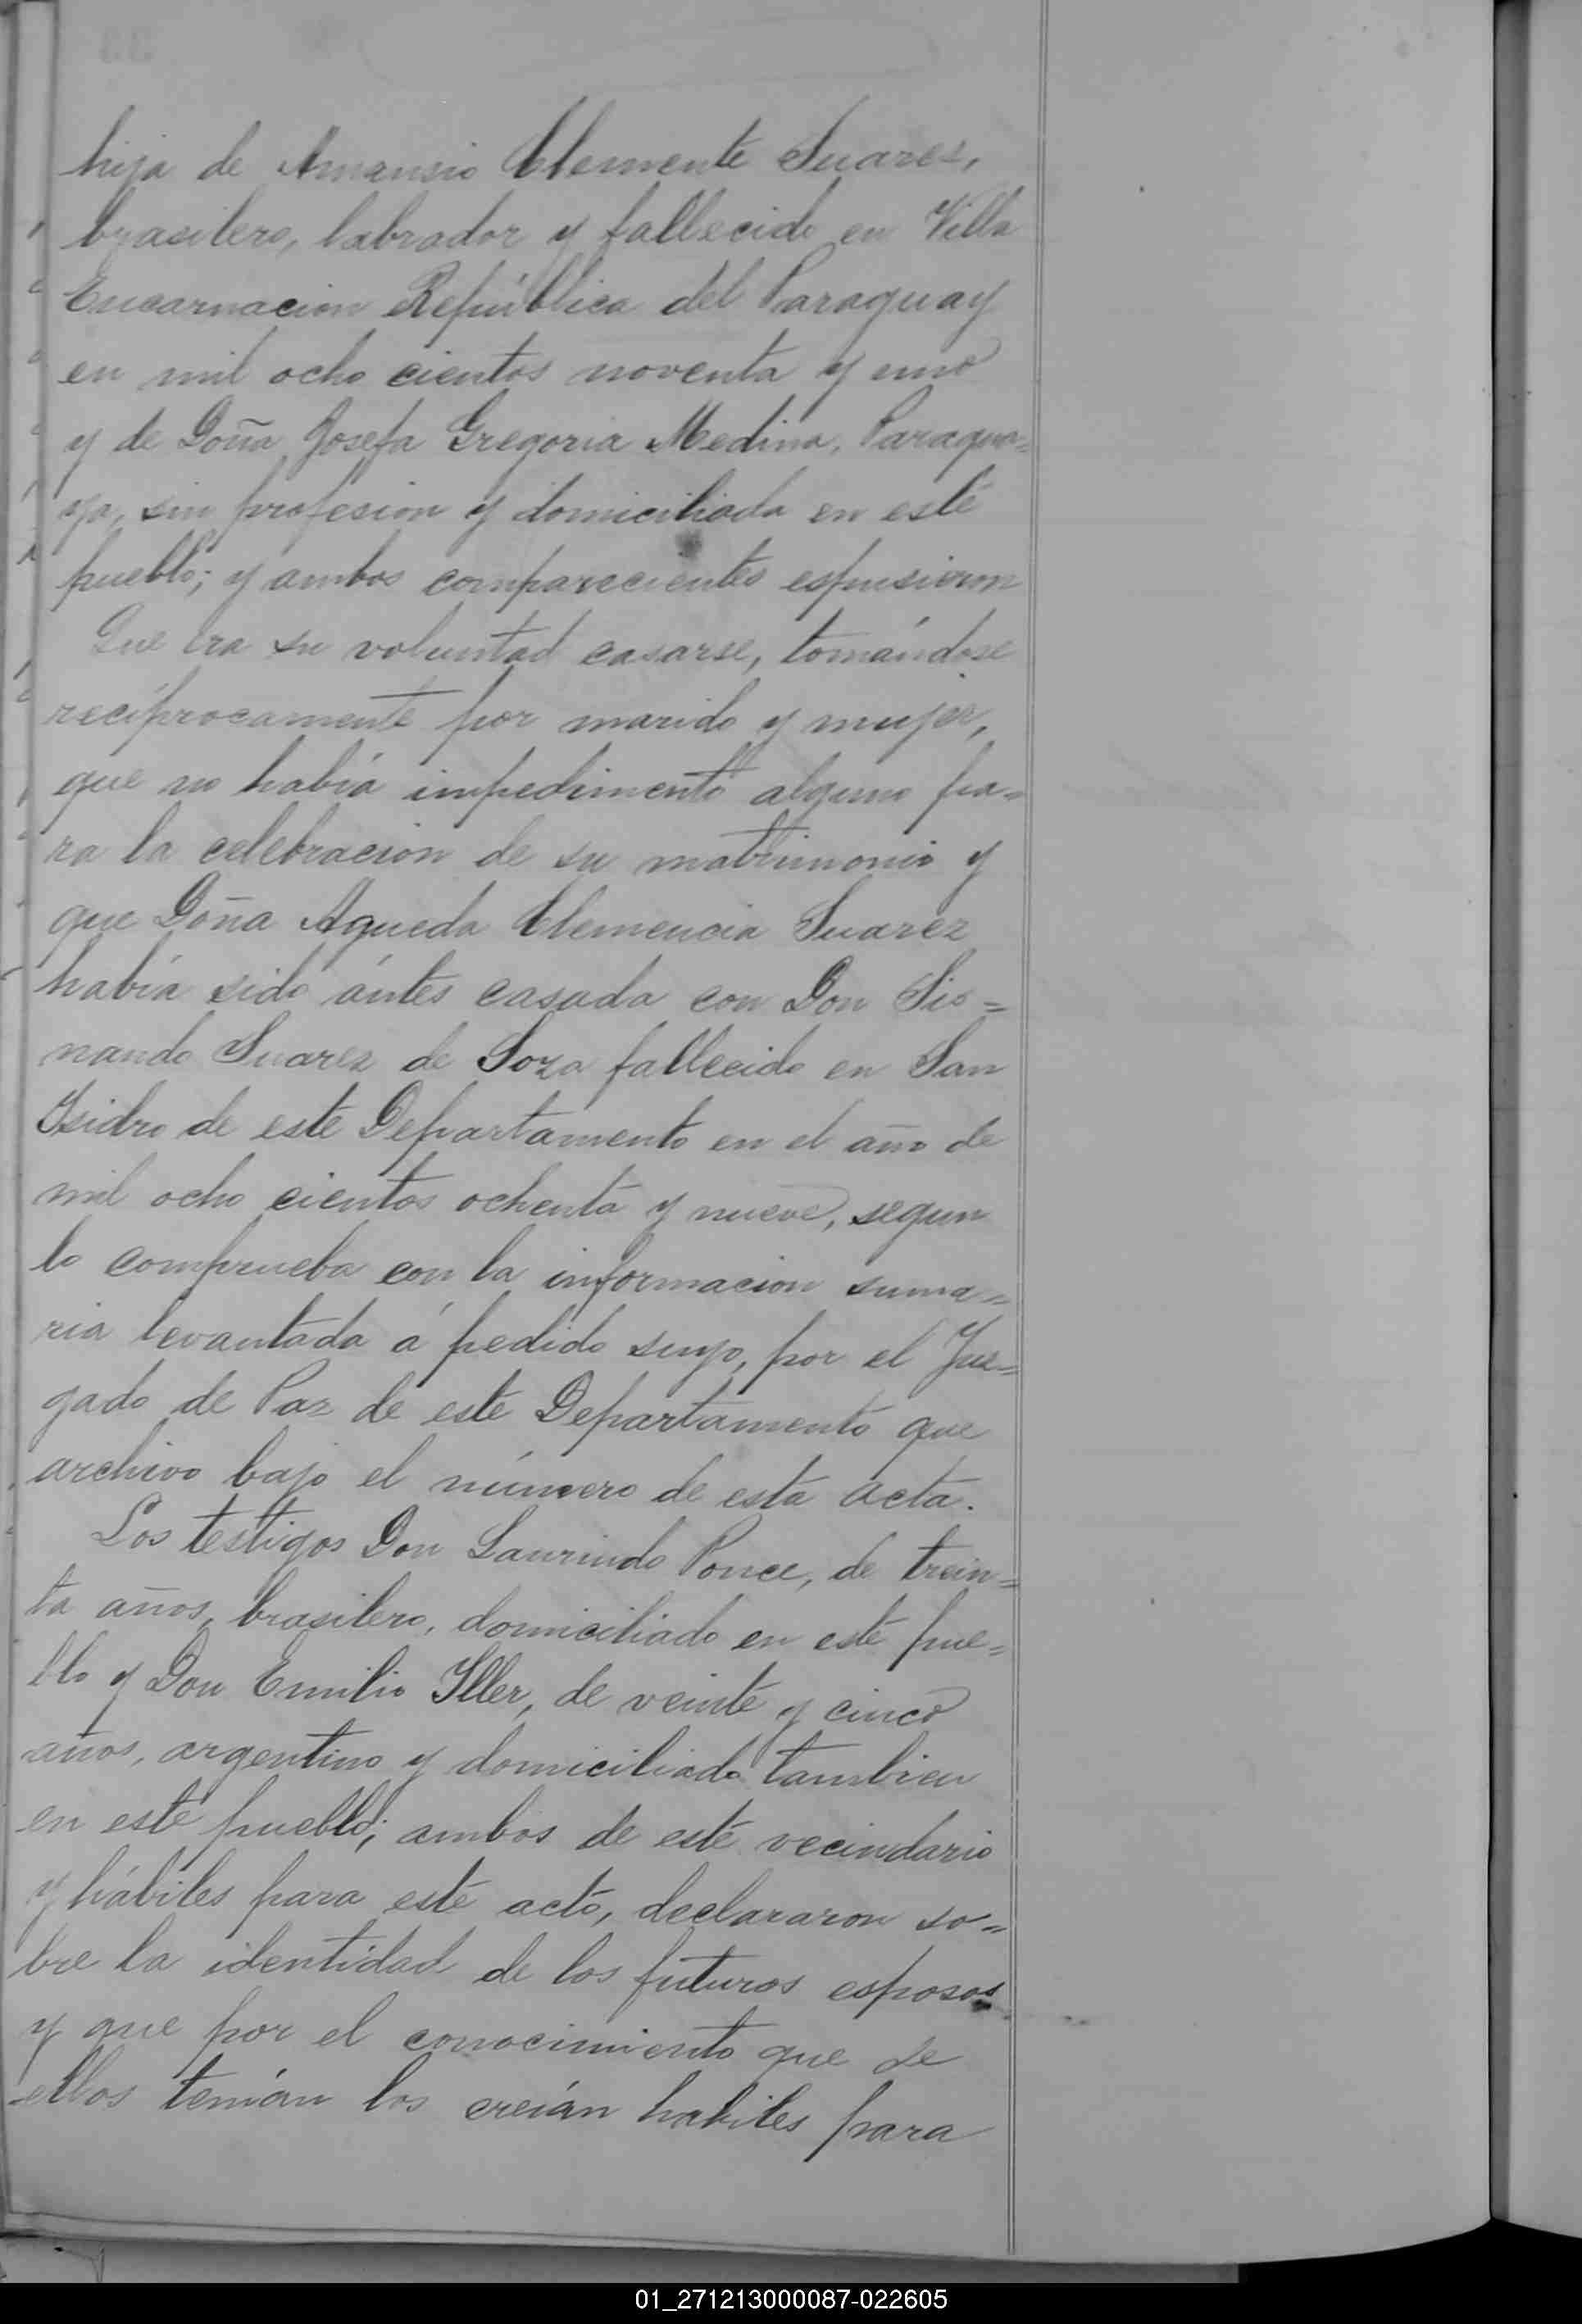 hija de Amansio Clemente Suares,
brasilero, labrador y fallecido en Villa
Encarnacion República del Paraguay
en mil ocho cientos noventa y uno
y de Doña Josefa Gregoria Medina, Paragua=
ya, sin profesion y domiciliada en este
pueblo; y ambos comparecientes espusieron
Que era su voluntad casarse, tomándose
recíprocamente por marido y mujer,
que no había impedimento alguno pa=
ra la celebracion de su matrimonio y
que Doña Agueda Clemencia Suarez
había sido ántes casada con Don Sis=
nando Suarez de Soza fallecido en San
Isidro de este Departamento en el año de
mil ocho cientos ochenta y nueve, segun
lo comprueba con la informacion suma=
ria levantada á pedido suyo, por el Juz=
gado de Paz de este Departamento que
archivo bajo el número de esta acta.
Los testigos Don Laurindo Ponce, de trein=
ta años, brasilero, domiciliado en este pue=
blo y Don Emilio Iller, de veinte y cinco
años, argentino y domiciliado tambien
en este pueblo; ambos de este vecindario
y hábiles para este acto, declararon so=
bre la identidad de los futuros esposos
y que por el conocimiento que de
ellos tenían los creían habiles para
01_271213000087-022605